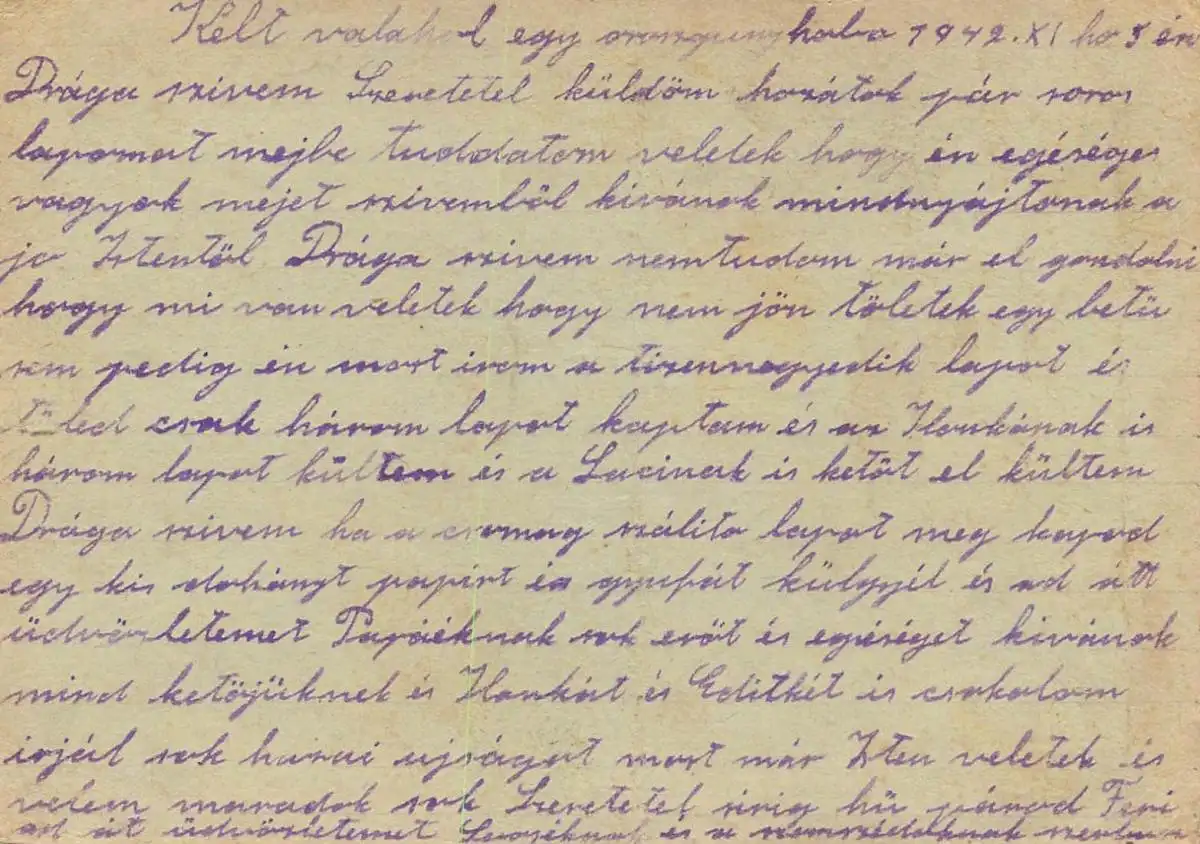 Kelt valahol egy oroszgunyhoba 1942. XI ho 5 én
Drága szivem Szeretetel küldöm hozátok pár soros
lapomat mejbe tuddatom veletek hogy én egéséges
vagyok mejet szivemböl kivánok mindnyájtonak a
jo Istentöl Drága szivem nemtudom már el gondolni
hogy mi van veletek hogy nem jön töletek egy betü
sem pedig én most irom a tizennegyedik lapot és
töled csak három lapot kaptam és az Ilonkának is
három lapot kültem és a Lacinak is ketöt el kültem
Drága szivem ha a csomag szálito lapot meg kapod
egy kis dohányt papirt és gyufát külgyél és ad átt
üdvözletemet Papáéknak sok eröt és egéséget kivánok
mind ketöjüknek és Ilonkát és Editkét is csokolom
irjál sok hazai ujságot most már Isten veletek és
velem maradok sok Szeretetel sirig hü párod Feri
ad át üdvözletemet és a szomszédoknak